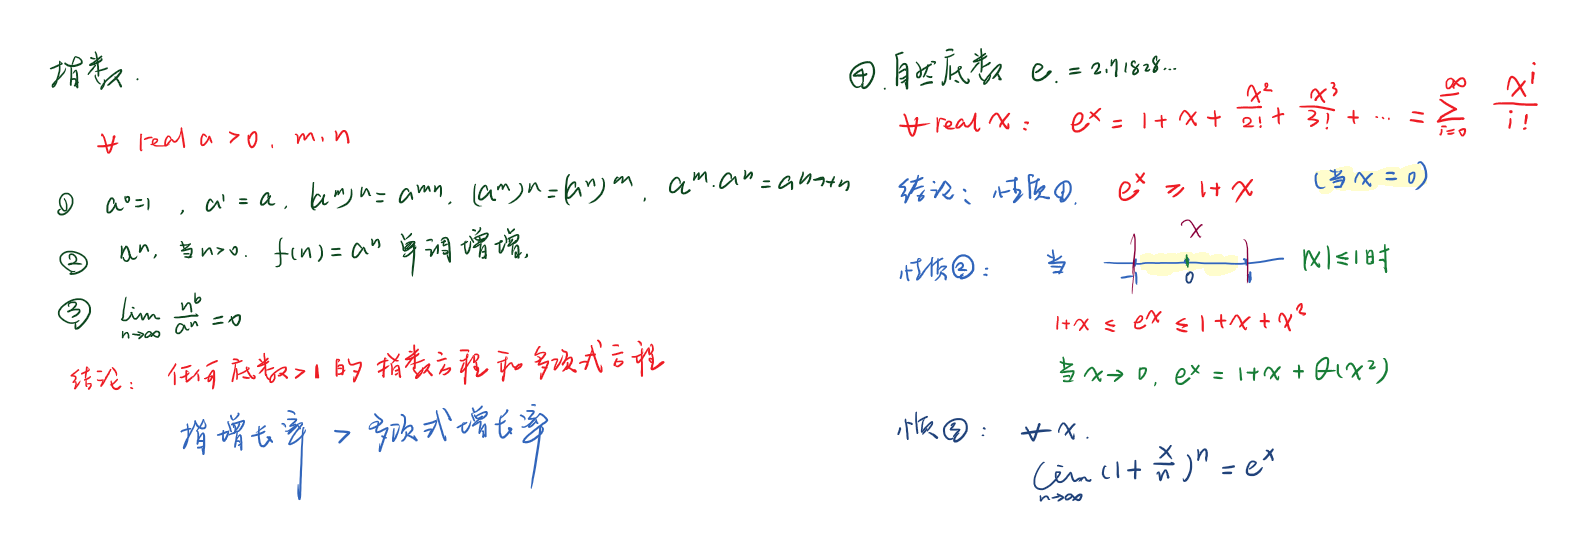 指数.
∀ real a > 0, m, n
① a⁰=1 , a¹ = a , (aᵐ)ⁿ = aᵐⁿ , (aᵐ)ⁿ = (aⁿ)ᵐ , aᵐ·aⁿ = aᵐ⁺ⁿ
② aⁿ, 当 n>0. f(n) = aⁿ 单调增增.
③ lim n→∞ nᵇ/aⁿ = 0
结论: 任何底数>1的指数方程和多项式方程
指增长率 > 多项式增长率
④. 自然底数 e. = 2.71828...
∀ real x: eˣ = 1 + x + x²/2! + x³/3! + ... = ∑ i=0 ∞ xⁱ/i!
结论: 性质①. eˣ ≥ 1 + x (当 x = 0)
性质②: 当 x -1 0 1 |x| ≤ 1时
1+x ≤ eˣ ≤ 1+x+x²
当 x→0, eˣ = 1+x+Θ(x²)
性质③: ∀ x.
lim n→∞ (1 + x/n)ⁿ = eˣ